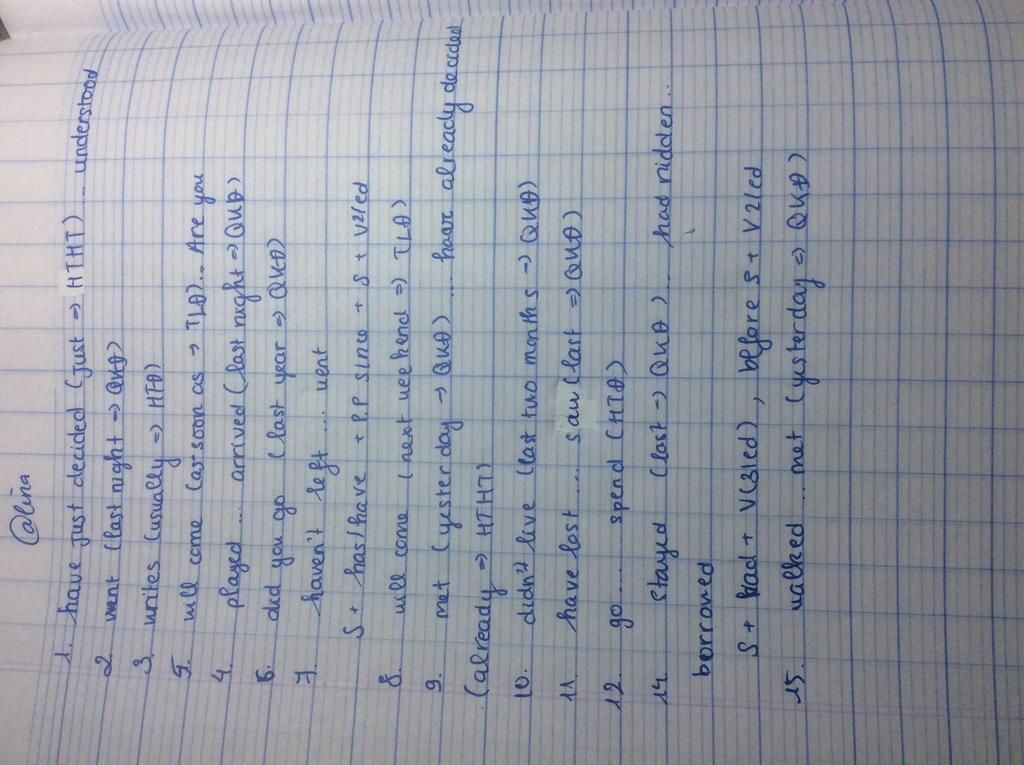 @lina
1. have just decided (just => HTHT) .... understood
2 went (last night => QKĐ)
3. writes (usually => HTĐ)
5. will come (as soon as -> TLĐ) ... Are you
4. played .... arrived (last night => QKĐ)
6. did you go (last year => QKĐ)
7. haven't left .... went
S + has/have + P.P since + S + V2/ed
8. will come (next weekend => TLĐ)
9. met (yesterday -> QKĐ) .... have already decided
(already => HTHT)
10. didn't live (last two months -> QKĐ)
11. have lost .... saw (last => QKĐ)
12. go .... spend (HTĐ)
14. stayed (last -> QKĐ) .... had ridden ..
borrowed
S + had + V(3/ed), before S + V2/ed
15. walked ... met (yesterday => QKĐ)